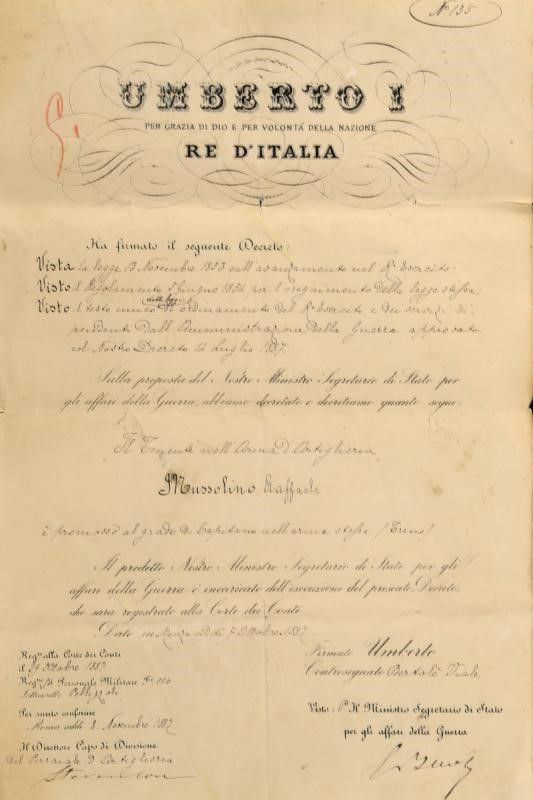 N° 135
UMBERTO I
PER GRAZIA DI DIO E PER VOLONTÀ DELLA NAZIONE
RE D'ITALIA
Ha firmato il seguente Decreto:
Vista la legge 13 Novembre 1853 sull'avanzamento nel R° Esercito;
Visto il Regolamento 5 Giugno 1854 per l'eseguimento della legge stessa;
Visto il testo unico delle leggi di ordinamento del R° Esercito e dei servizi di
pendenti dall'Amministrazione della Guerra approvato
col Nostro Decreto 14 Luglio 1887.
Sulla proposta del Nostro Ministro Segretario di Stato per
gli affari della Guerra, abbiamo decretato e decretiamo quanto segue:
Il Tenente nell'Arma d'Artiglieria
Mussolino Raffaele
è promosso al grado di Capitano nell'arma stessa (Treno)
Il predetto Nostro Ministro Segretario di Stato per gli
affari della Guerra è incaricato dell'esecuzione del presente Decreto,
che sarà registrato alla Corte dei Conti.
Dato in Monza addì 7 Ottobre 1887
Reg.° alla Corte dei Conti
il Ottobre 1887
Reg.° Personale Militare F° 110
Firmato Umberto
Controsegnato Bertolè Viale
Per sunto conforme
Roma addì 8 Novembre 1887
Il Direttore Capo di Divisione
del Personale d'Artiglieria
Visto: Pl Il Ministro Segretario di Stato
per gli affari della Guerra